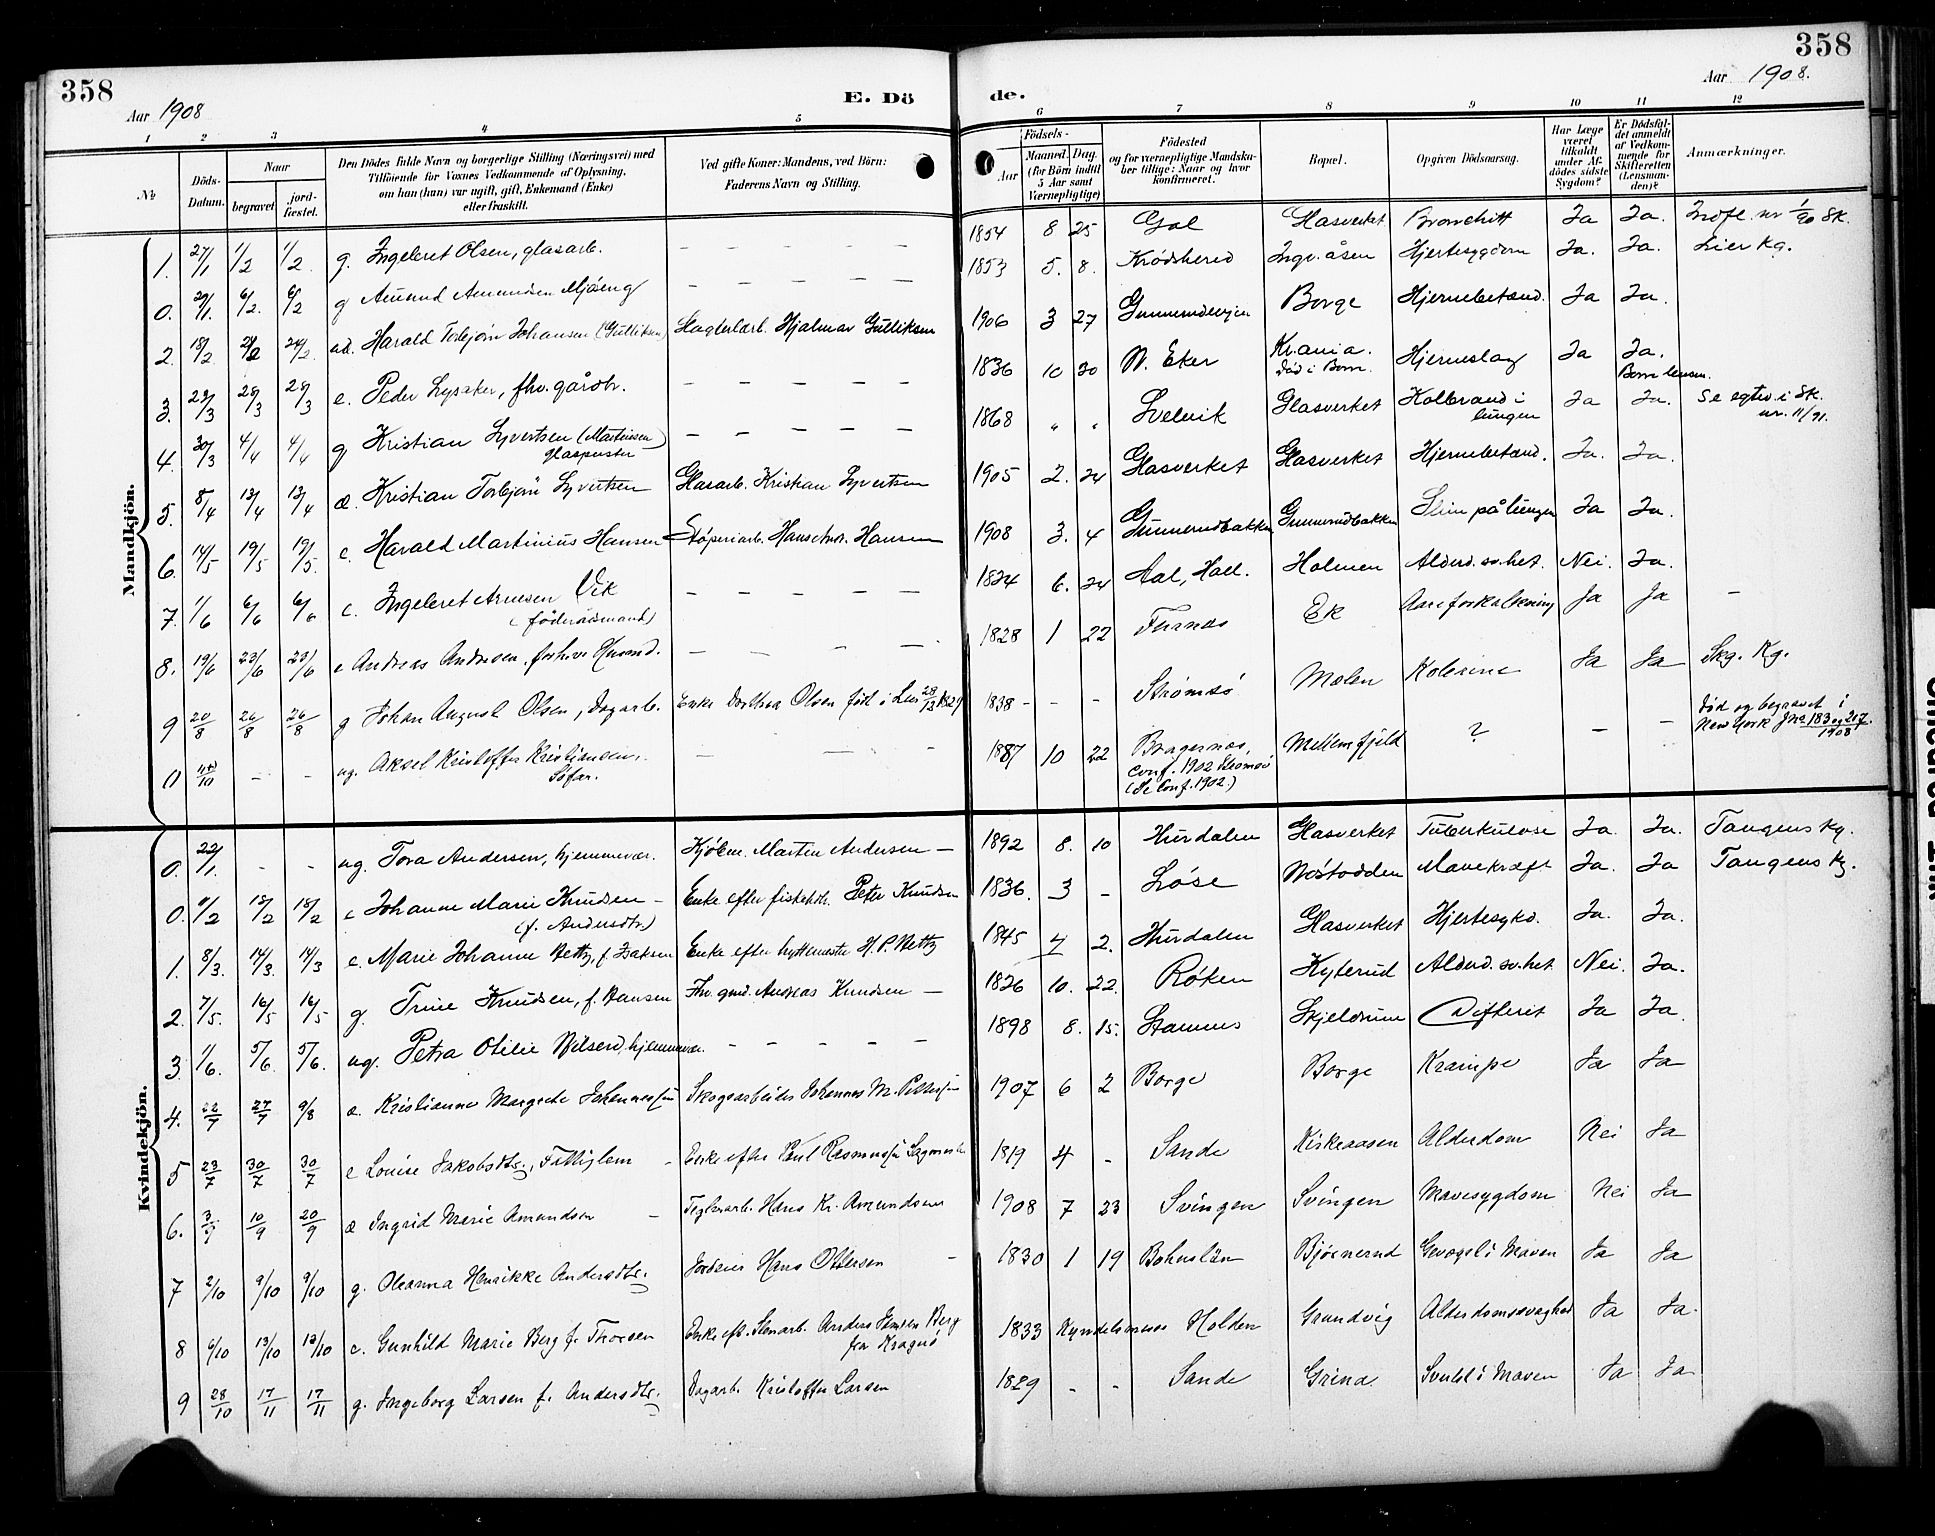 358
Aar 1908
E. Dö
de.
358
Aar 1908.
1 2 3 4 5 6 7 8 9 10 11 12
No
Döds-Datum.
Naar
begravet.
jord-fæstet.
Den Dödes fulde Navn og borgerlige Stilling (Næringsvei) med
Tilföiende for Voxnes Vedkommende af Oplysning,
om han (hun) var ugift, gift, Enkemand (Enke)
eller fraskilt.
Ved gifte Koner: Mandens, ved Börn:
Faderens Navn og Stilling.
Födsels-
Aar
Maaned. Dag.
(for Börn indtil
5 Aar samt
Værnepligtige)
Födested
og for værnepligtige Mandska-
ber tillige: Naar og hvor
konfirmeret.
Bopæl.
Opgiven Dödsaarsag.
Har Læge
været
tilkaldt
under Af-
dödes sidste
Sygdom?
Er Dödsfal-
det anmeldt
af Vedkom-
mende for
Skifteretten
(Lensman-
den)?
Anmærkninger.
Mandkjön.
1. 27/1 1/2 1/2. g. Ingebret Olsen, glasarb. – – – – 1854 8 25 Gol Glasverket Bronchitt Ja Ja. Indfl. nr 1/90 Sk.
0. 29/1. 6/2. 6/2 g Amund Amundsen Mjöeng – – – – 1853 5. 8. Krödshered Ingv.åsen Hjertesygdom Ja. Ja. Lier Kg.
2. 18/2 21/2 24/2. Harald Torbjörn Johansen (Gulliksen) Hjalmar Gulliksen 1906 3 27 Borge Hjernebetænd. Ja Ja.
3. 22/3 28/3 28/3 e. Peder Lysaker, fhv. gårdbr. – – – – 1836 10 20 N. Eker Kr.ania. död i Hjerneslag Ja Ja.
4. 30/3 4/4 4/4 g Kristian Syvertsen (Martinsen) glaspuster – – – – 1868 " " Svelvik Glasverket Koldbrand i lungen Ja Ja. Se i Sk. nr. 11/91.
5. 8/4 13/4 13/4 æ. Kristian Torbjörn Syvertsen Glasarb. Kristian Syvertsen 1905 2. 24 Glasverket Glasverket Hjernebetænd. Ja. Ja.
6. 14/5 19/5 19/5. e. Harald Martinius Hansen Støperiarb. Hans Hansen 1908 3. 4 Gunnerudbakken Gunnerudbakken Slim på lungen Ja Ja.
7. 1/6 6/6 6/6 e. Ingebret Arnesen Vik (föderådsmand) – – – – 1824 6. 24 Aal, Hall. Holmen Alderd.sv.het. Nei. Ja.
8. 19/6 23/6 23/6 e Andreas Andresen, forhenv Husmd. – – – – 1828 1 22 Furnes Ek Aareforkalkning Ja Ja –
9 20/8 26/8 26/8 g Johan August Olsen, Dagarb. Enke Dorthea Olsen föd i Lier 28/12 1829 1838 – – – Strømsö Mælen Kolerine Ja Ja Skg. Kg.
0 /10 – – ug. Aksel Kristoffer Kristiansen, Söfar. – – – 1887 10 22 Bragernes, conf. 1902 Strømsö (Se Conf. 1902.) Mellemfjeld ? – – död og begravet i New York Jno 183 og 207. 1908
Kvindekjön.
0. 22/1. – – ug. Tora Andersen, hjemmevær. Kjöbm. Martin Andersen – 1892 8. 10 Hurdalen Glasverket Tuberkulose Ja. Ja. Tangens Kg.
0. /2 18/2 18/2 e Johanne Marie Knudsen – (f. Andersdtr) Enke efter fiskehdl. Peter Knudsen 1836. 3 – Nöstodden Mavekræft Ja. Ja Tangens Kg.
1. 8/3. 14/3. 14/3 e. Marie Johanne f. Isaksen Enke efter hyttemester H. P. 1845 4 2. Hurdalen Glasverket Hjertesygd. Ja. Ja.
2. 7/5. 16/5 16/5 g. Trine Knudsen, f. Hansen Fhv. gmd. Andreas Knudsen – 1826 10. 22. Röken Kyterud Alderd.sv.het Nei. Ja.
3. 1/6. 5/6. 5/6. ug. Petra Otilie Nilsen, hjemmevær. – – – – 1898 8. 15. Skjeldrum Difterit Ja Ja.
4. 22/7 27/7 9/8 æ. Kristianne Margrete Johannessen Skogsarbeider Johannes M. Pettersen 1907 6 2 Borge Borge Krampe Ja Ja
5 23/7 30/7 30/7 e Louise Jakobsdtr., Fattiglem – Enke efter Paul Rasmussen 1819 4 – Sande Kirkeaasen Alderdom Nei Ja
6. 3/9 10/9 20/9 æ Ingrid Marie Amundsen – Teglverkarb. Hans Kr. Amundsen 1908 7 23 Svingen Svingen Mavesygdom Nei Ja
7 2/10 9/10 9/10 g. Oleanna Henrikke Andersdtr. Jordeier Hans Ottersen – 1830 1 19 Bohuslän Bjørnerud i Maven Ja Ja
8 6/10 13/10 13/10 e. Gunhild Marie Berg f. Thorsen Enke eft. Stenarb. Anders Jensen Berg fra Kragerö 1833 Kyndelsmess Holden Grundvig Alderdomssvaghed Ja Ja.
9 28/10 17/11 17/11 g. Ingeborg Larsen f. Andersdtr. Dagarb. Kristoffer Larsen 1829 – – Sande Grina Svulst i Maven Ja Ja